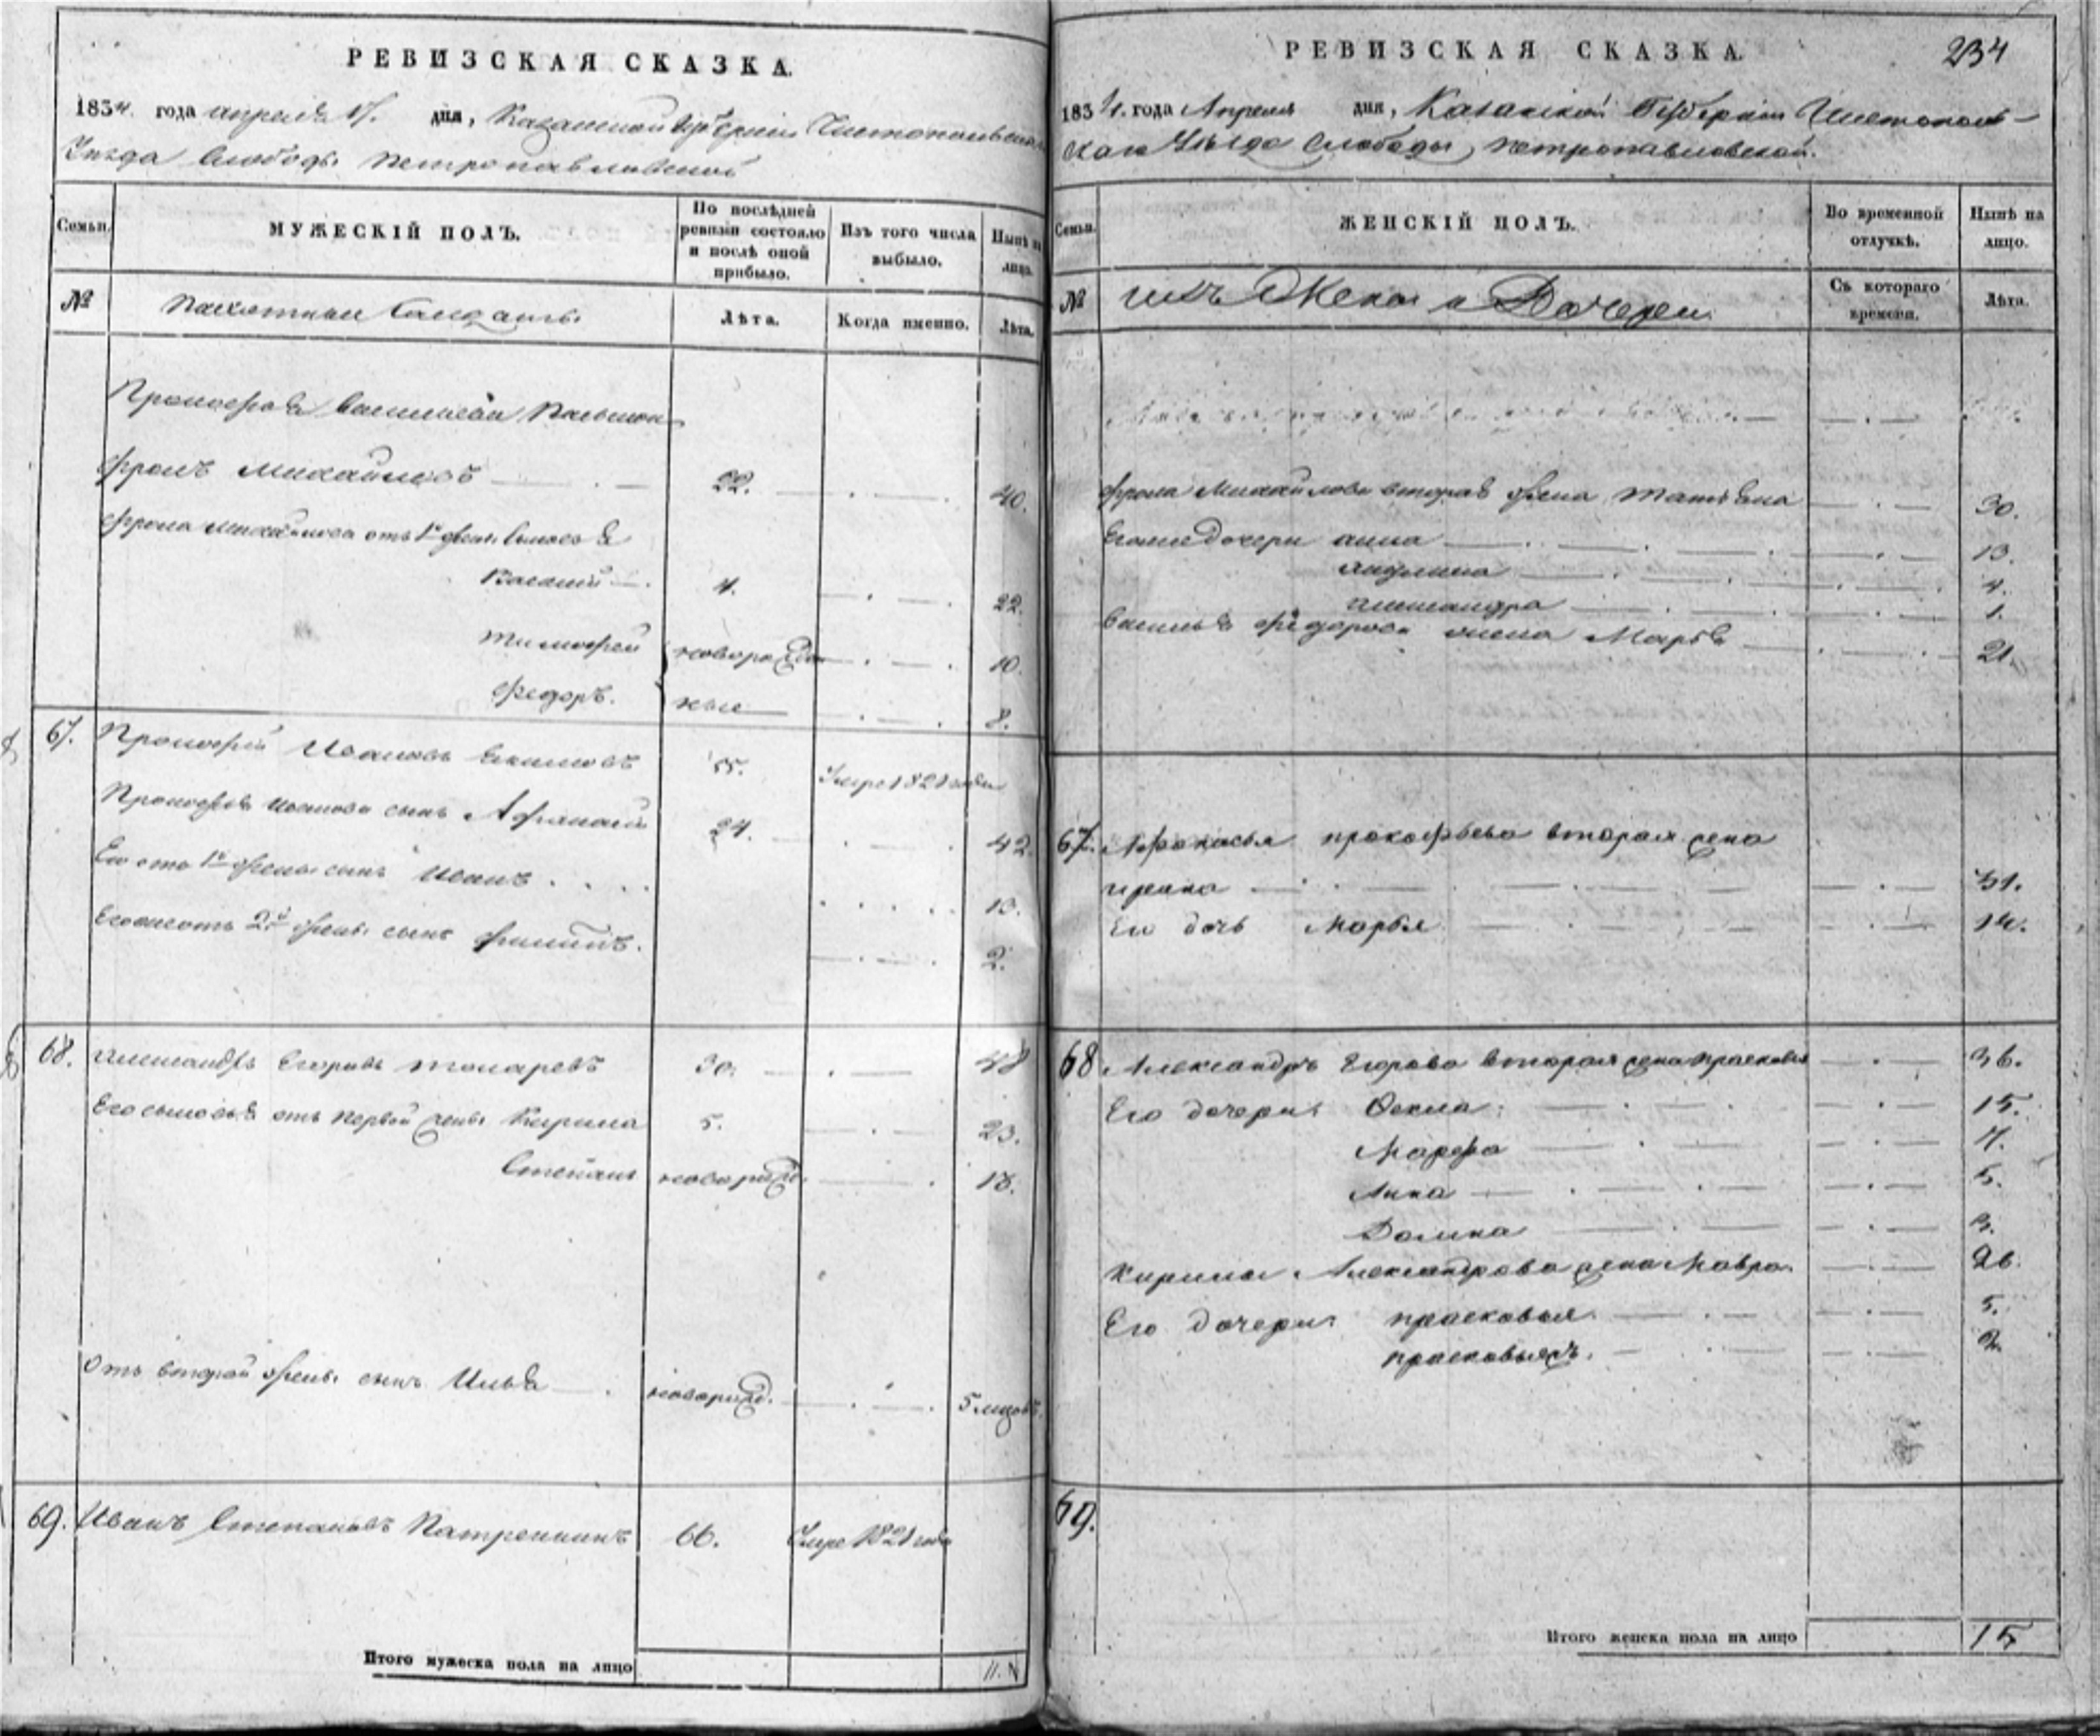 РЕВИЗСКАЯ СКАЗКА.
1834. года апреля дня, Казанской Губернии Чистопольскаго
Уезда Слободы Петропавловской
Семьи.
МУЖЕСКІЙ ПОЛЪ.
По послѣдней ревизіи состояло и послѣ оной прибыло.
Изъ того числа выбыло.
Нынѣ на лицо.
№
Пахатные Солдаты.
Лѣта.
Когда именно.
Лѣта.
Прокофья
Фролъ Михайловъ 22. 40.
Фрола Михайлова отъ 1й жены сыновья
4. 22.
Тимофей новорожден 10.
Федоръ. ные 8.
67. Прокофей Ивановъ 55. Умре 1821 года
Прокофья Иванова сынъ Афанасей 24. 42
Его отъ 1й жены сынъ Иванъ 13.
Его же отъ 2й жены сынъ Филипъ. 2.
68. Александръ Егоровъ Токаревъ 30. 48
Его сыновья отъ первой жены Кирила 5. 23.
Степанъ новорожд. 18.
Отъ второй жены сынъ Илья новорожд. 5 мцовъ.
69. Иванъ Степановъ 66. Умре 1821 года
Итого мужеска пола на лицо 11.
РЕВИЗСКАЯ СКАЗКА. 234
1834. года Апреля дня, Казанской Губернии Чистополь-
скаго Уѣзда Слободы Петропавловской.
Семьи.
ЖЕНСКІЙ ПОЛЪ.
Во временной отлучкѣ.
Нынѣ на лицо.
№
ихъ Жены и Дочери.
Съ котораго времени.
Лѣта.
Фрола Михайлова вторая жена Татьяна 30.
Его же дочери анна 13.
Акулина 4.
Александра 1.
Василья Федорова жена Марья 21.
67. Афонасья прокофьева вторая жена
ирина 31.
Его дочь Марья 14.
68 Александръ Егорова вторая жена прасковья 36.
Его дочери Фекла 15.
Марфа 7.
Анна 5.
Домна 3.
Кирилы Александрова жена Мавра. 26.
Его дочери прасковья 5.
прасковья ж. 2
69.
Итого женска пола на лицо 15